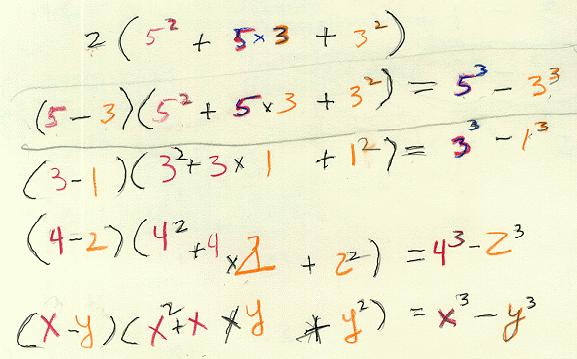 2 ( 5² + 5 × 3 + 3² )
(5 - 3)(5² + 5 × 3 + 3²) = 5³ - 3³
(3 - 1)(3² + 3 × 1 + 1²) = 3³ - 1³
(4 - 2)(4² + 4 × 2 + 2²) = 4³ - 2³
(x - y)(x² + x × y + y²) = x³ - y³